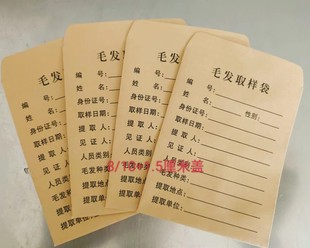 毛发取
编 号:
姓 名:
身份证号:
取样日期:
提 取 人:
见 证 人:
人员类别:
毛发种类:
提取地点:
提取单位:
毛发取
编 号:
姓 名:
身份证号:
取样日期:
提 取 人:
见 证 人:
人员类别:
毛发种类:
提取地点:
提取单位:
毛发取
编 号:
姓 名:
身份证号:
取样日期:
提 取 人:
见 证 人:
人员类别:
毛发种类:
提取地点:
提取单位:
毛发取样袋
编 号:
姓 名: 性别:
身份证号:
取样日期:
提 取 人:
见 证 人:
人员类别:
毛发种类:
提取地点:
提取单位:
厘米盖